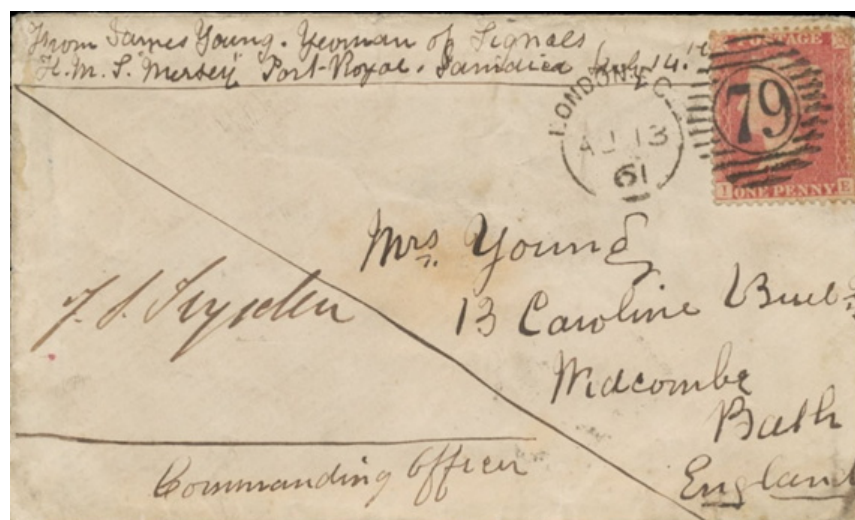 From James Young. Yeoman of Signals
H.M.S. Mersey Port-Royal. Jamaica July 14.
LONDON.EC
AU 13
61
79
POSTAGE
I ONE PENNY E
Mrs. Young
13 Caroline
Widcombe
Bath
England
Commanding Officer